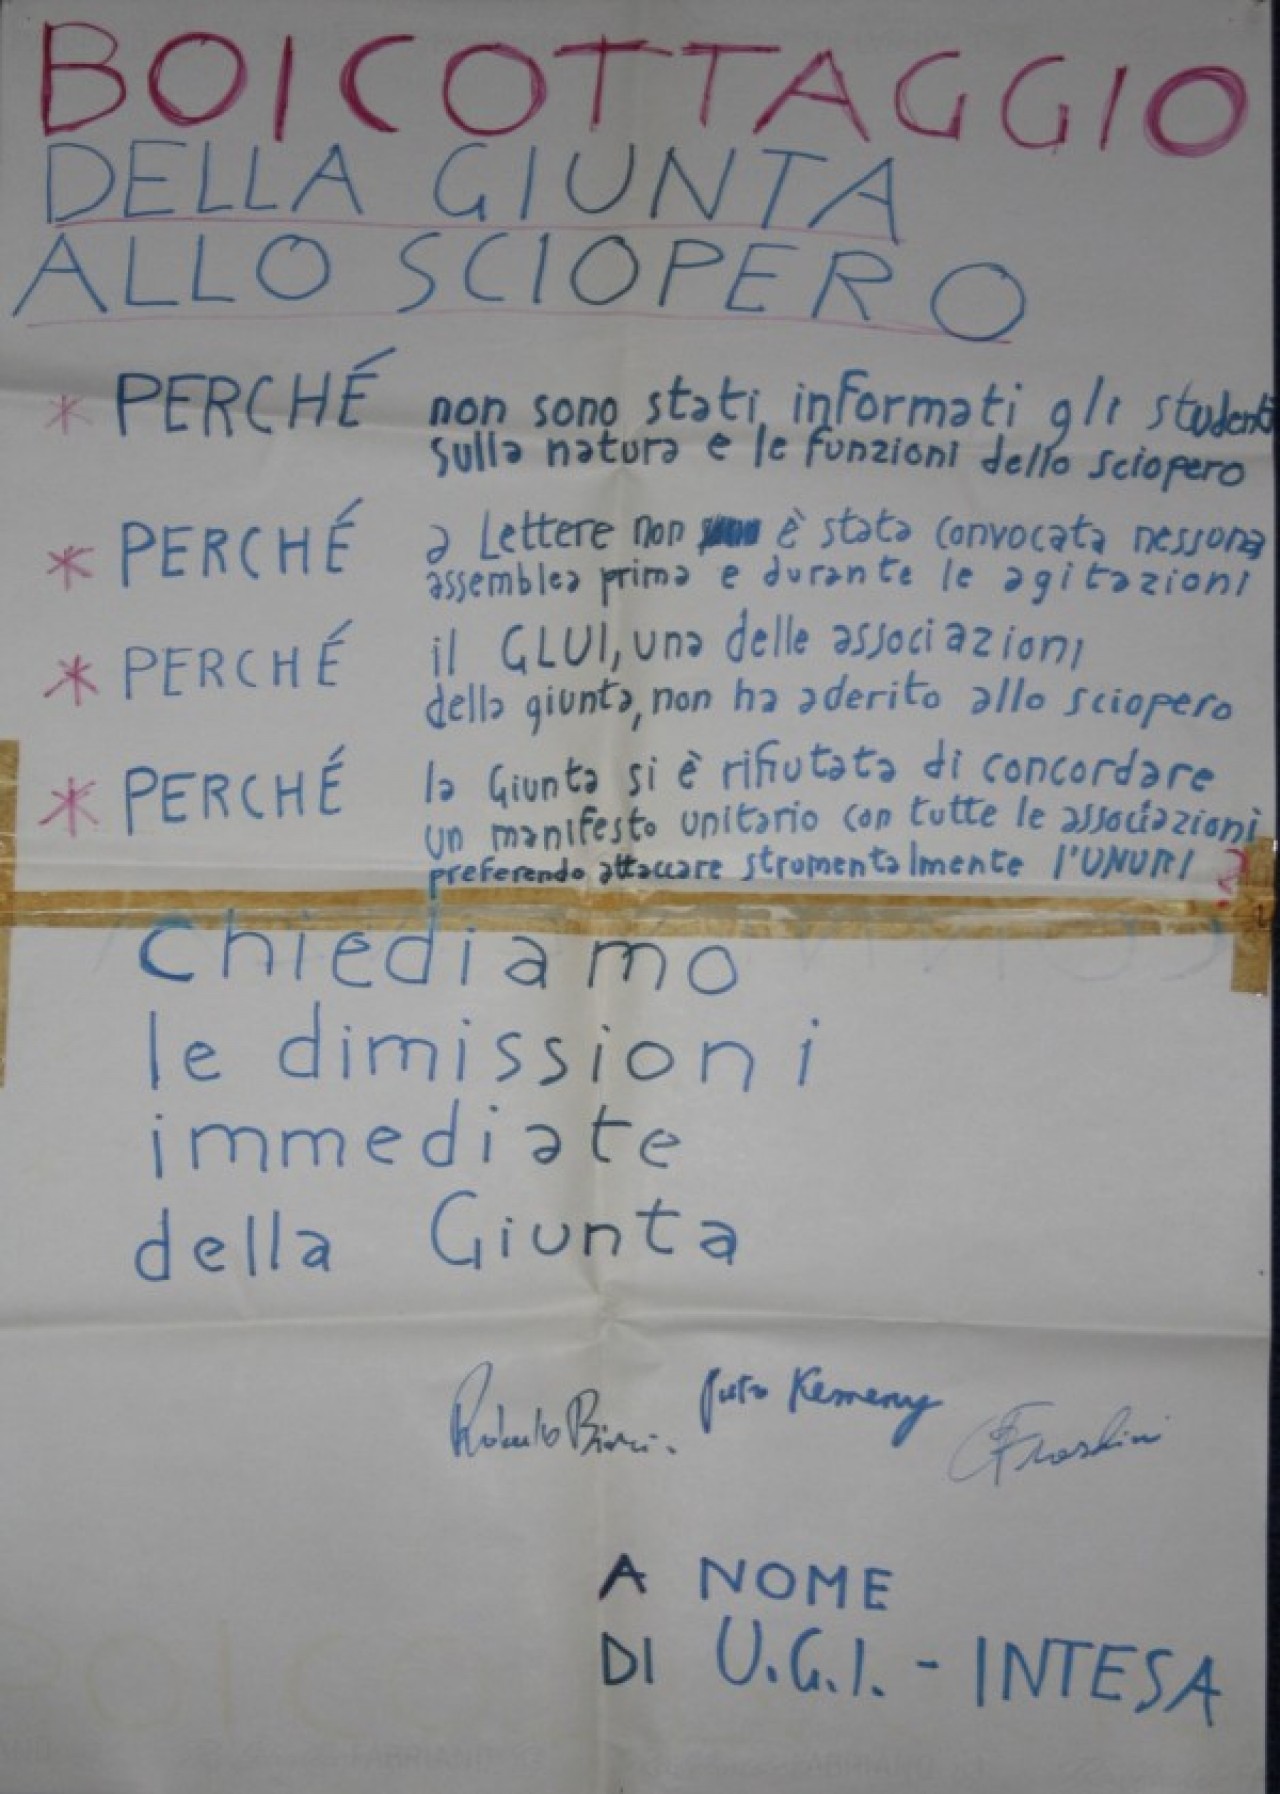 BOICOTTAGGIO
DELLA GIUNTA
ALLO SCIOPERO
* PERCHÉ non sono stati informati gli studenti
sulla natura e le funzioni dello sciopero
* PERCHÉ a Lettere non è stata convocata nessuna
assemblea prima e durante le agitazioni
* PERCHÉ il GLUI, una delle associazioni
della giunta, non ha aderito allo sciopero
* PERCHÉ la Giunta si è rifiutata di concordare
un manifesto unitario con tutte le associazioni
preferendo attaccare strumentalmente l'UNURI
Chiediamo
le dimissioni
immediate
della Giunta
Roberto Kemeny
A NOME
DI U.G.I. - INTESA